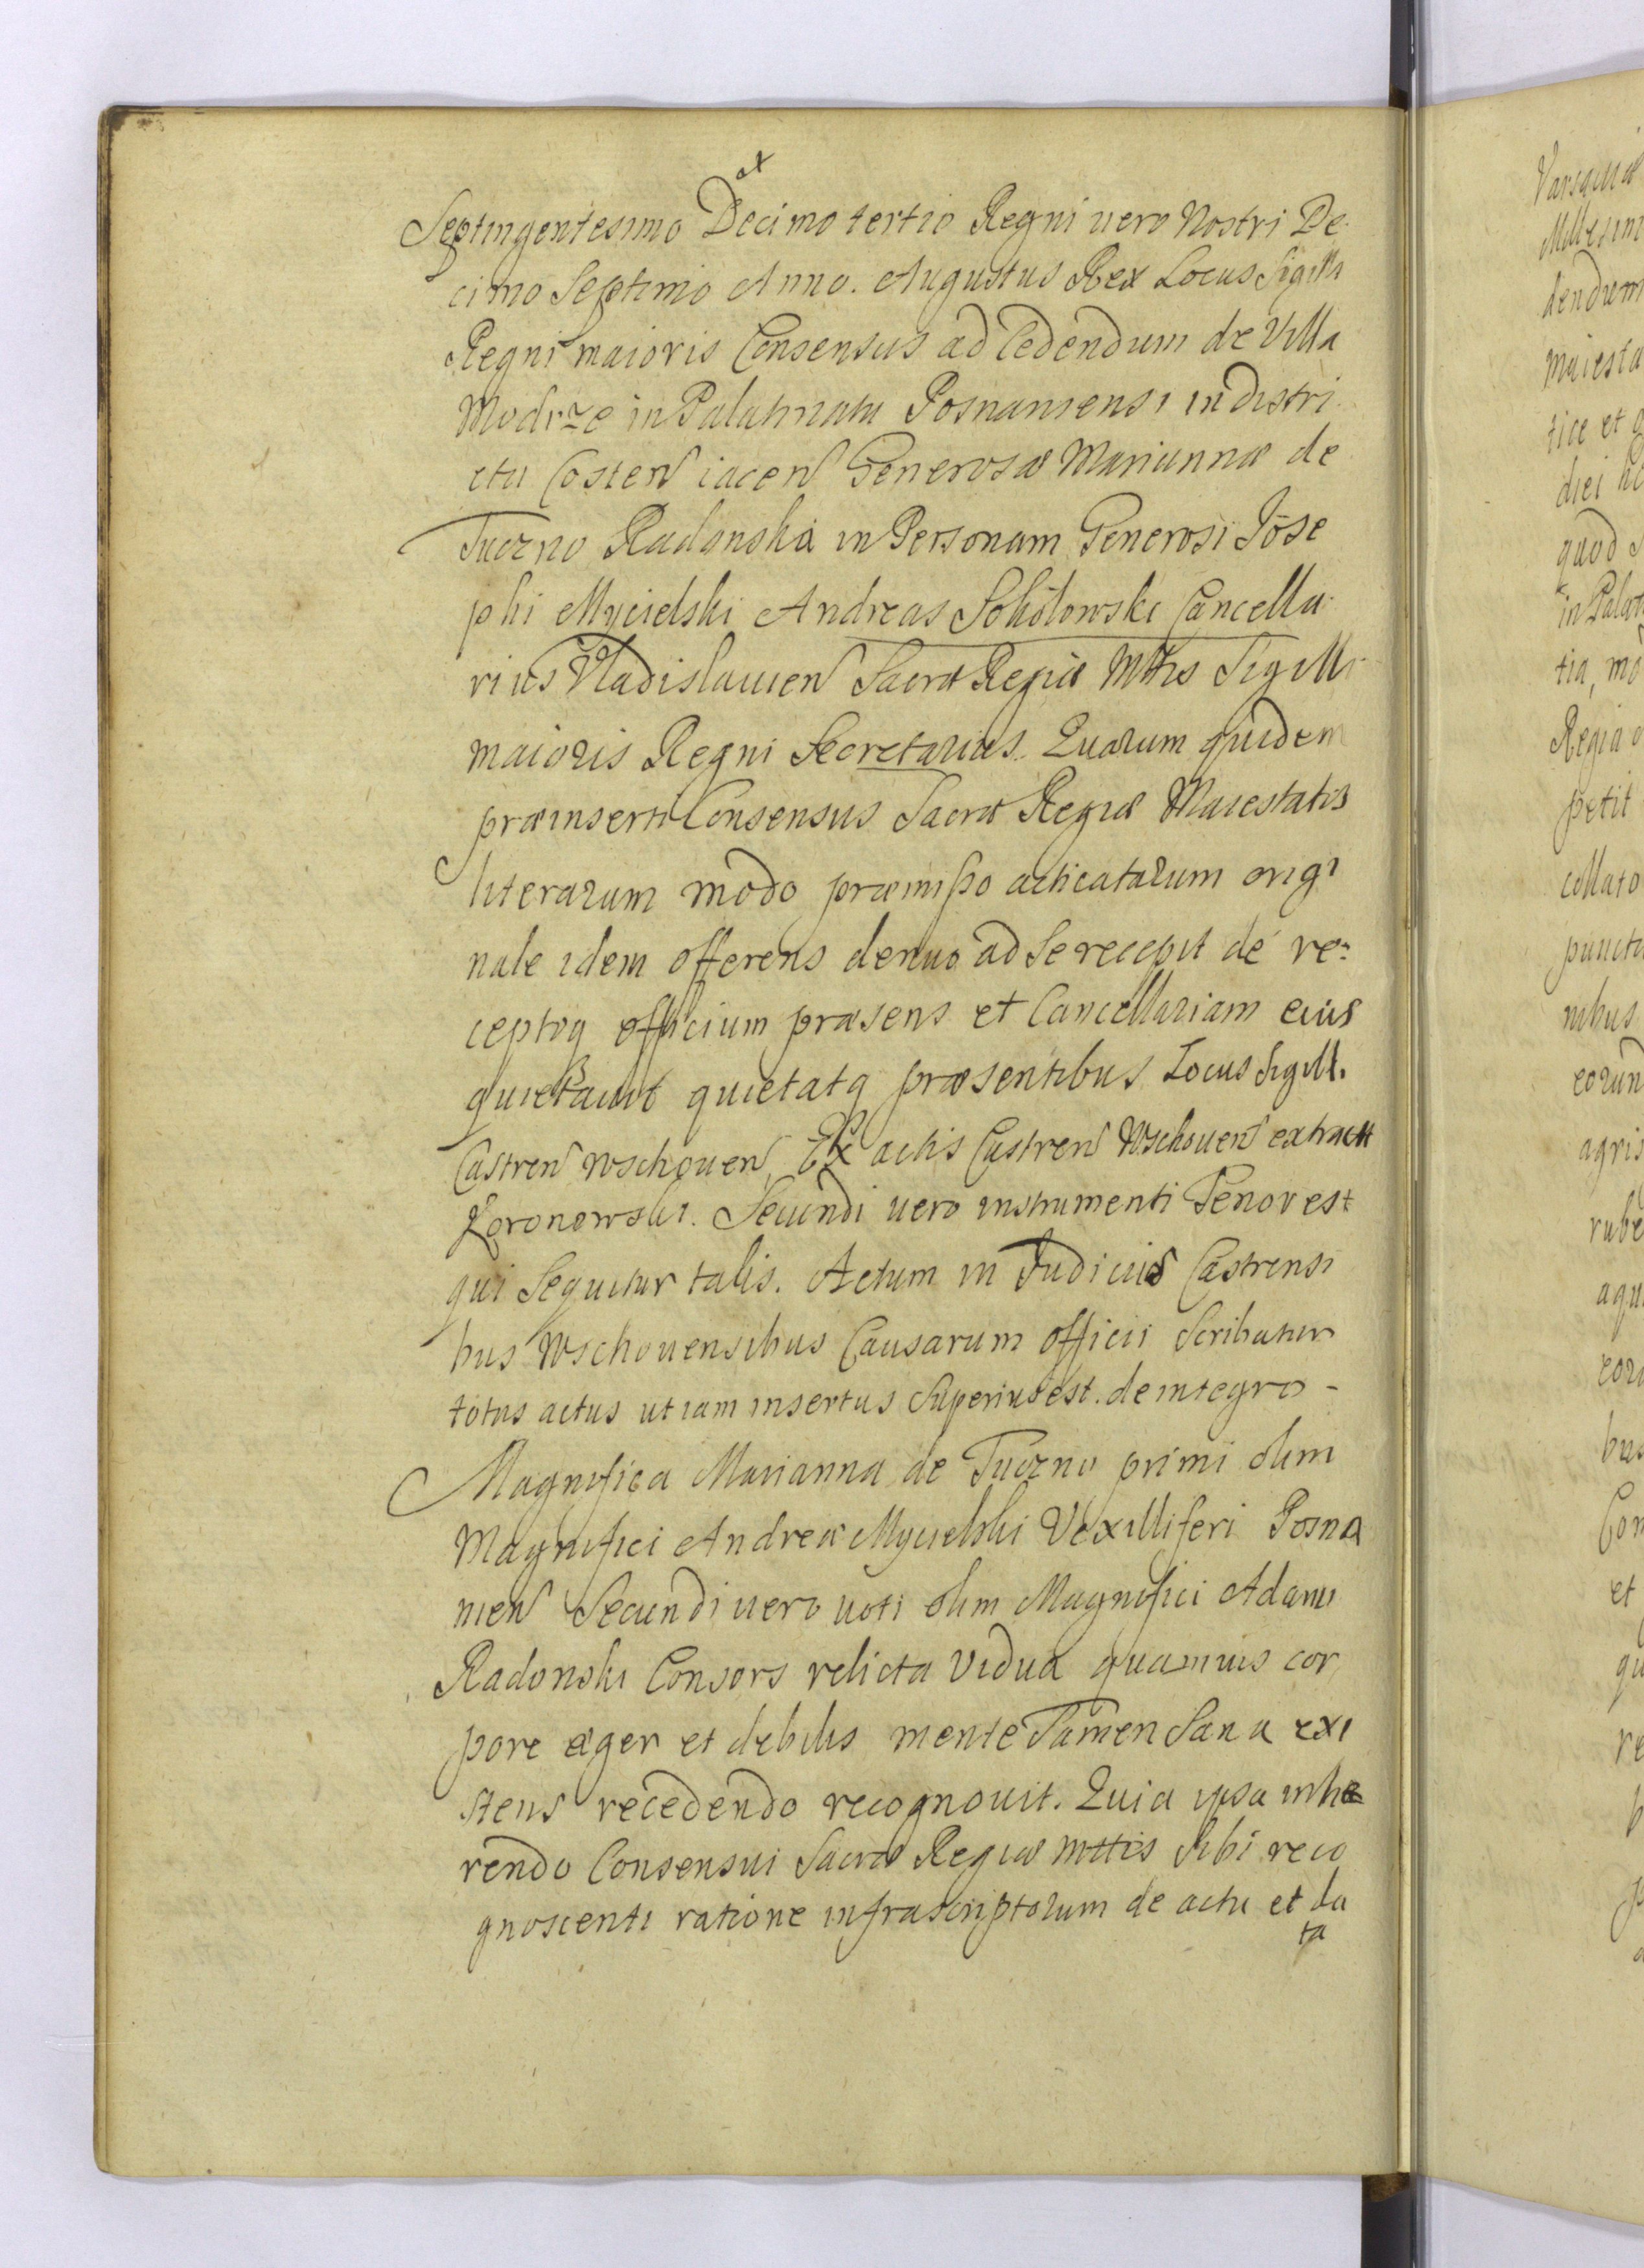 Septingentesimo Decimo tertio Regni uero Nostri De-
cimo Septimo Anno. Augustus Rex Locus Sigilli
Regni maioris Consensus ad Cedendum de Villa
Modrze in Palatinatu Posnaniensi in distri
ctu Costen iacen Generosæ Mariannæ de
Tuczno Radonska in Personam Generosi Jose
phi Mycielski Andreas Sokolowski Cancella-
rius Vladislauien Sacræ Regiæ Mttis Sigilli
maioris Regni Secretarius. Quarum quidem
præinserti Consensus Sacræ Regiæ Maiestatis
literarum modo præmisso acticatarum origi
nale idem offerens denuo ad se recepit de re=
ceptoq officium præsens et Cancellariam eius
quietauit quietatq præsentibus Locus Sigill.
Castren Wschouen, Ex actis Castren Wschouen extractt
Koronowski. Secundi uero instrumenti Tenor est
qui Sequitur talis. Actum in Judiciis Castrensi
bus Wschouensibus Causarum officii Scribatur
totus actus ut iam insertus Superius est. de integro -
Magnifica Marianna de Tuczno primi olim
Magnifici Andreæ Mycielski Vexilliferi Posna
nien Secundi uero uoti olim Magnifici Adami
Radonski Consors relicta Vidua quamuis cor
pore æger et debilis mente Tamen Sana exi
stens recedendo recognouit. Quia ipsa inhæ
rendo Consensui Sacræ Regiæ Mttis Sibi reco
gnoscenti ratione infrascriptorum de actu et da
ta
Varsauiæ
Millesim
dendum
maiesta
tice et
diei
quod
in Palat
tia, mo
Regia
petit
collato
puncta
nibus
eorun
agris
rube
aqu
eoru
bus
Con
et
qu
re